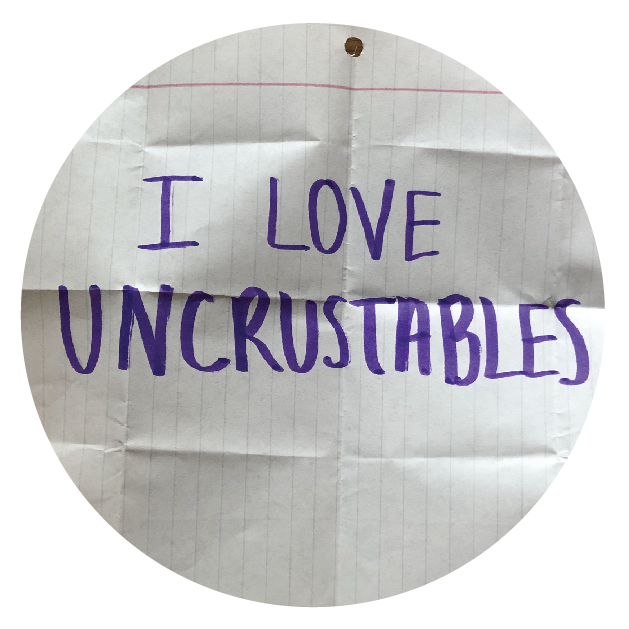 I LOVE
UNCRUSTABLES